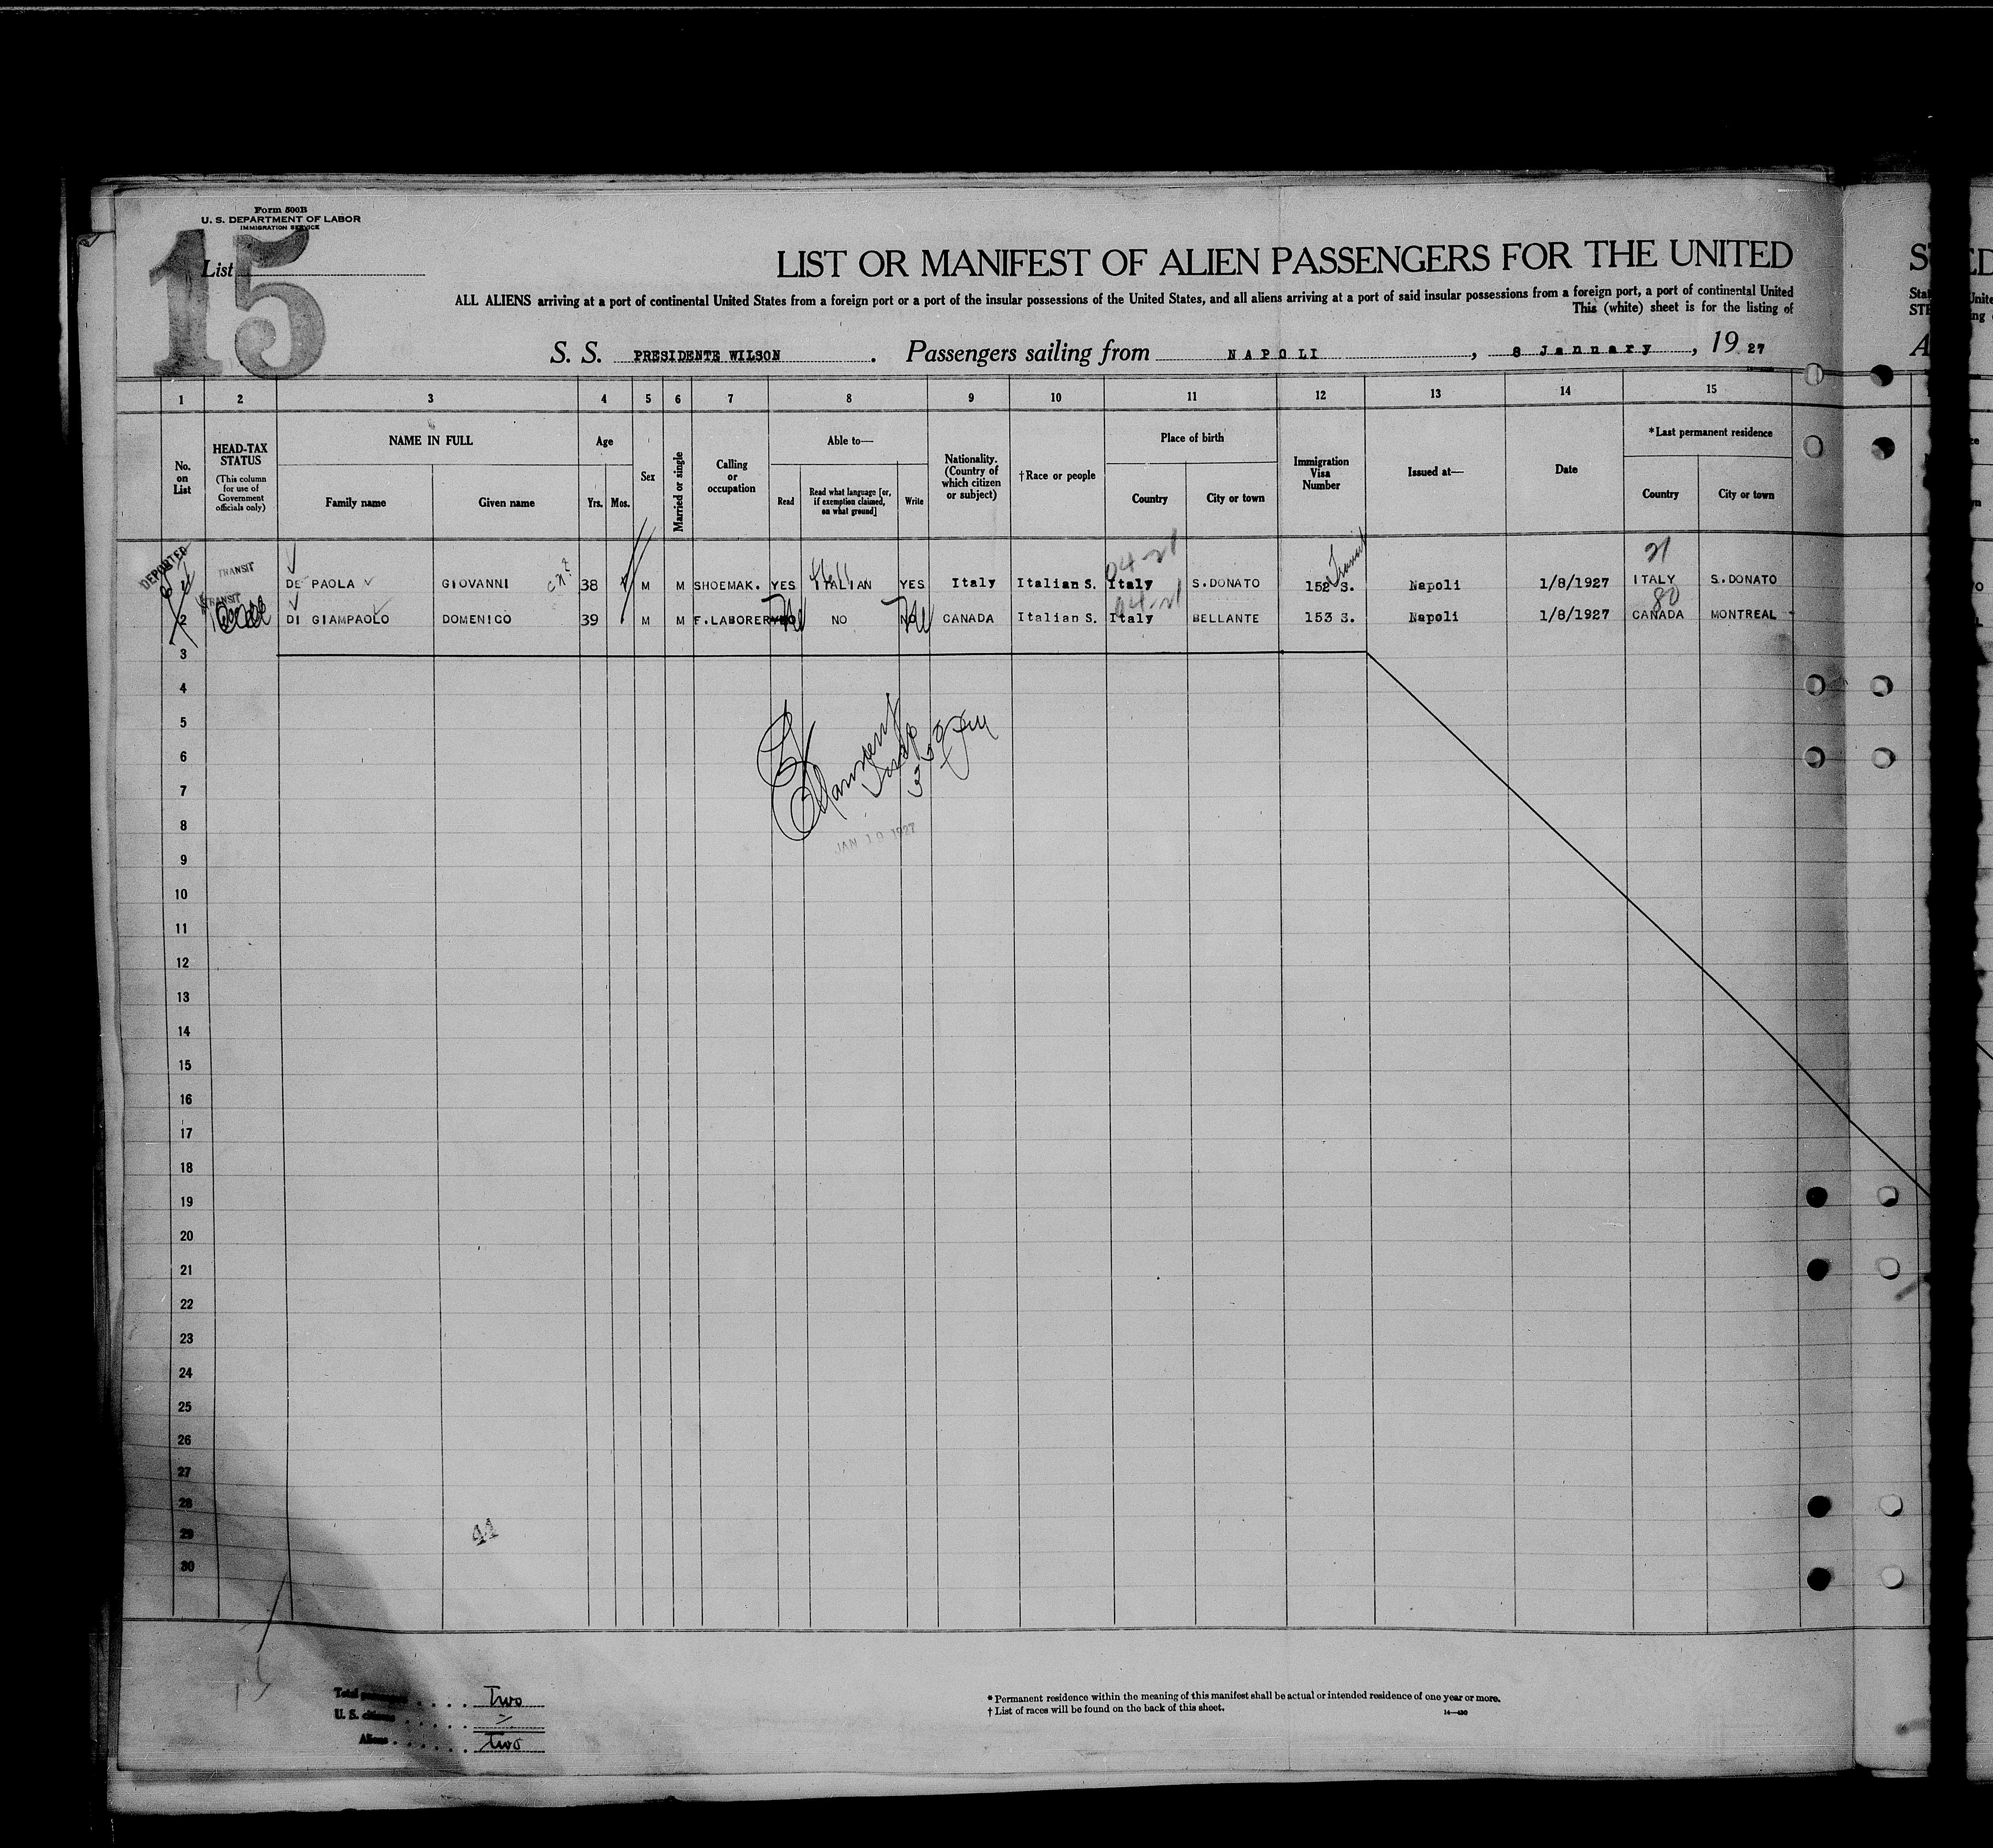 Form 500B
U. S. DEPARTMENT OF LABOR
IMMIGRATION SERVICE
List
15
LIST OR MANIFEST OF ALIEN PASSENGERS FOR THE UNITED
ALL ALIENS arriving at a port of continental United States from a foreign port or a port of the insular possessions of the United States, and all aliens arriving at a port of said insular possessions from a foreign port, a port of continental United
This (white) sheet is for the listing of
S. S. PRESIDENTE WILSON. Passengers sailing from NAPOLI, 8 January, 19 27
1 2 3 4 5 6 7 8 9 10 11 12 13 14 15
No. on List
HEAD-TAX STATUS
(This column for use of Government officials only)
NAME IN FULL
Family name
Given name
Age
Yrs.
Mos.
Sex
Married or single
Calling or occupation
Able to—
Read
Read what language [or, if exemption claimed, on what ground]
Write
Nationality. (Country of which citizen or subject)
†Race or people
Place of birth
Country
City or town
Immigration Visa Number
Issued at—
Date
*Last permanent residence
Country
City or town
DEPORTED
TRANSIT
04-21
Transit
21
1 DE PAOLA GIOVANNI 38 M M SHOEMAK. YES ITALIAN YES Italy Italian S. Italy S.DONATO 152 S. Napoli 1/8/1927 ITALY S.DONATO
TRANSIT
04-21
80
2 DI GIAMPAOLO DOMENICO 39 M M F.LABORER NO NO CANADA Italian S. Italy BELLANTE 153 S. Napoli 1/8/1927 CANADA MONTREAL
3
4
5
6
7
8
9
10
11
12
13
14
15
16
17
18
19
20
21
22
23
24
25
26
27
28
29
30
JAN 19 1927
Total passengers . . . . Two
U. S. citizens . . . . .
Aliens . . . . . . Two
* Permanent residence within the meaning of this manifest shall be actual or intended residence of one year or more.
† List of races will be found on the back of this sheet.
14—430